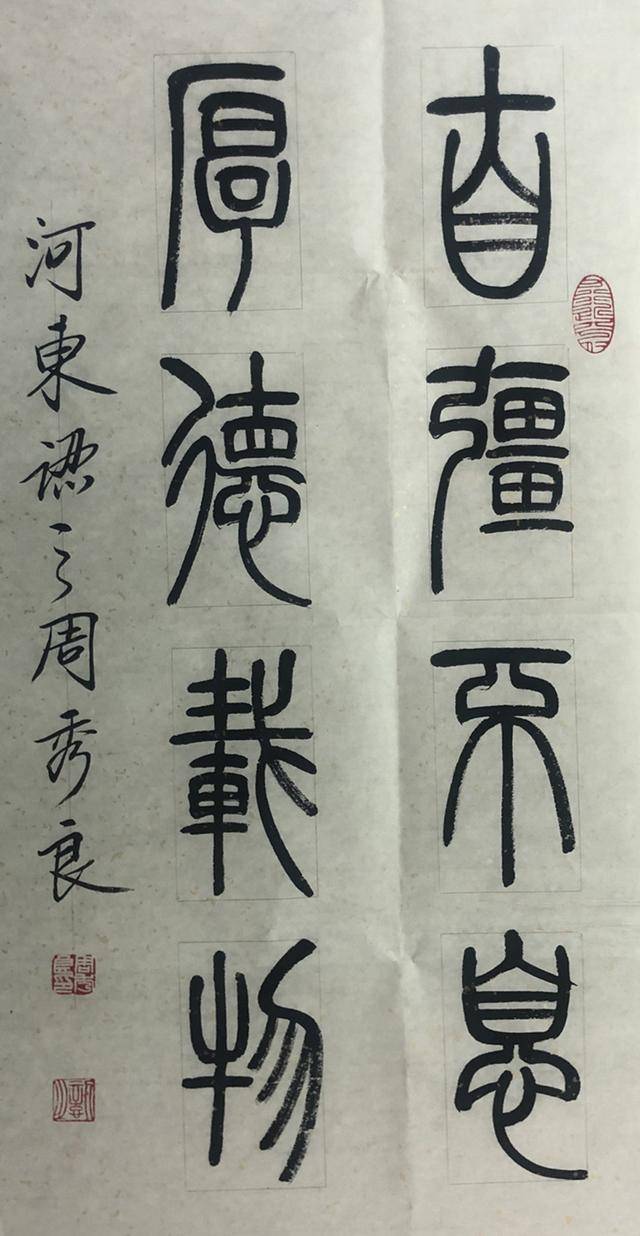 自彊不息
厚德載物
河東之周秀良